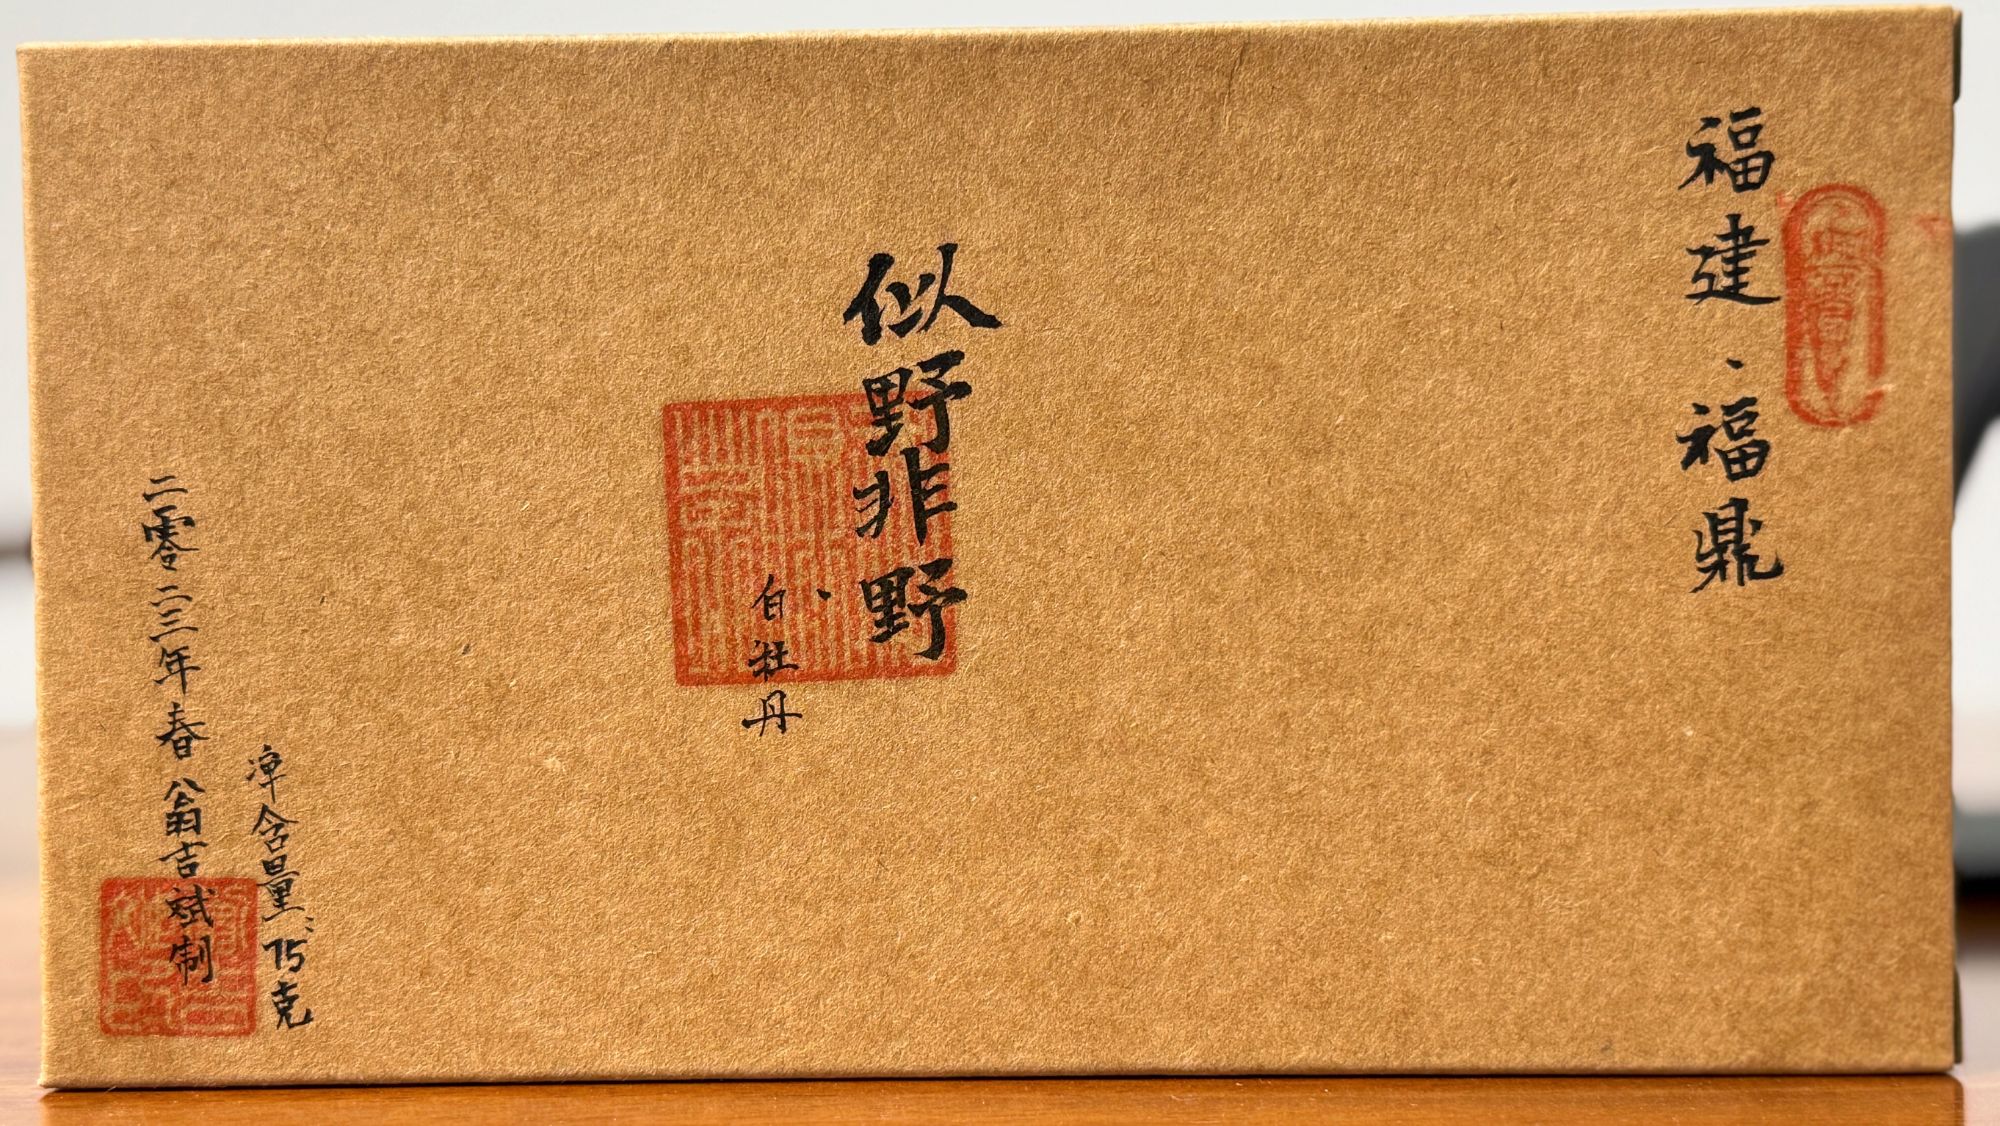 福建·福鼎
似野非野
、白牡丹
净含量:75克
二零二三年春 翁吉斌制